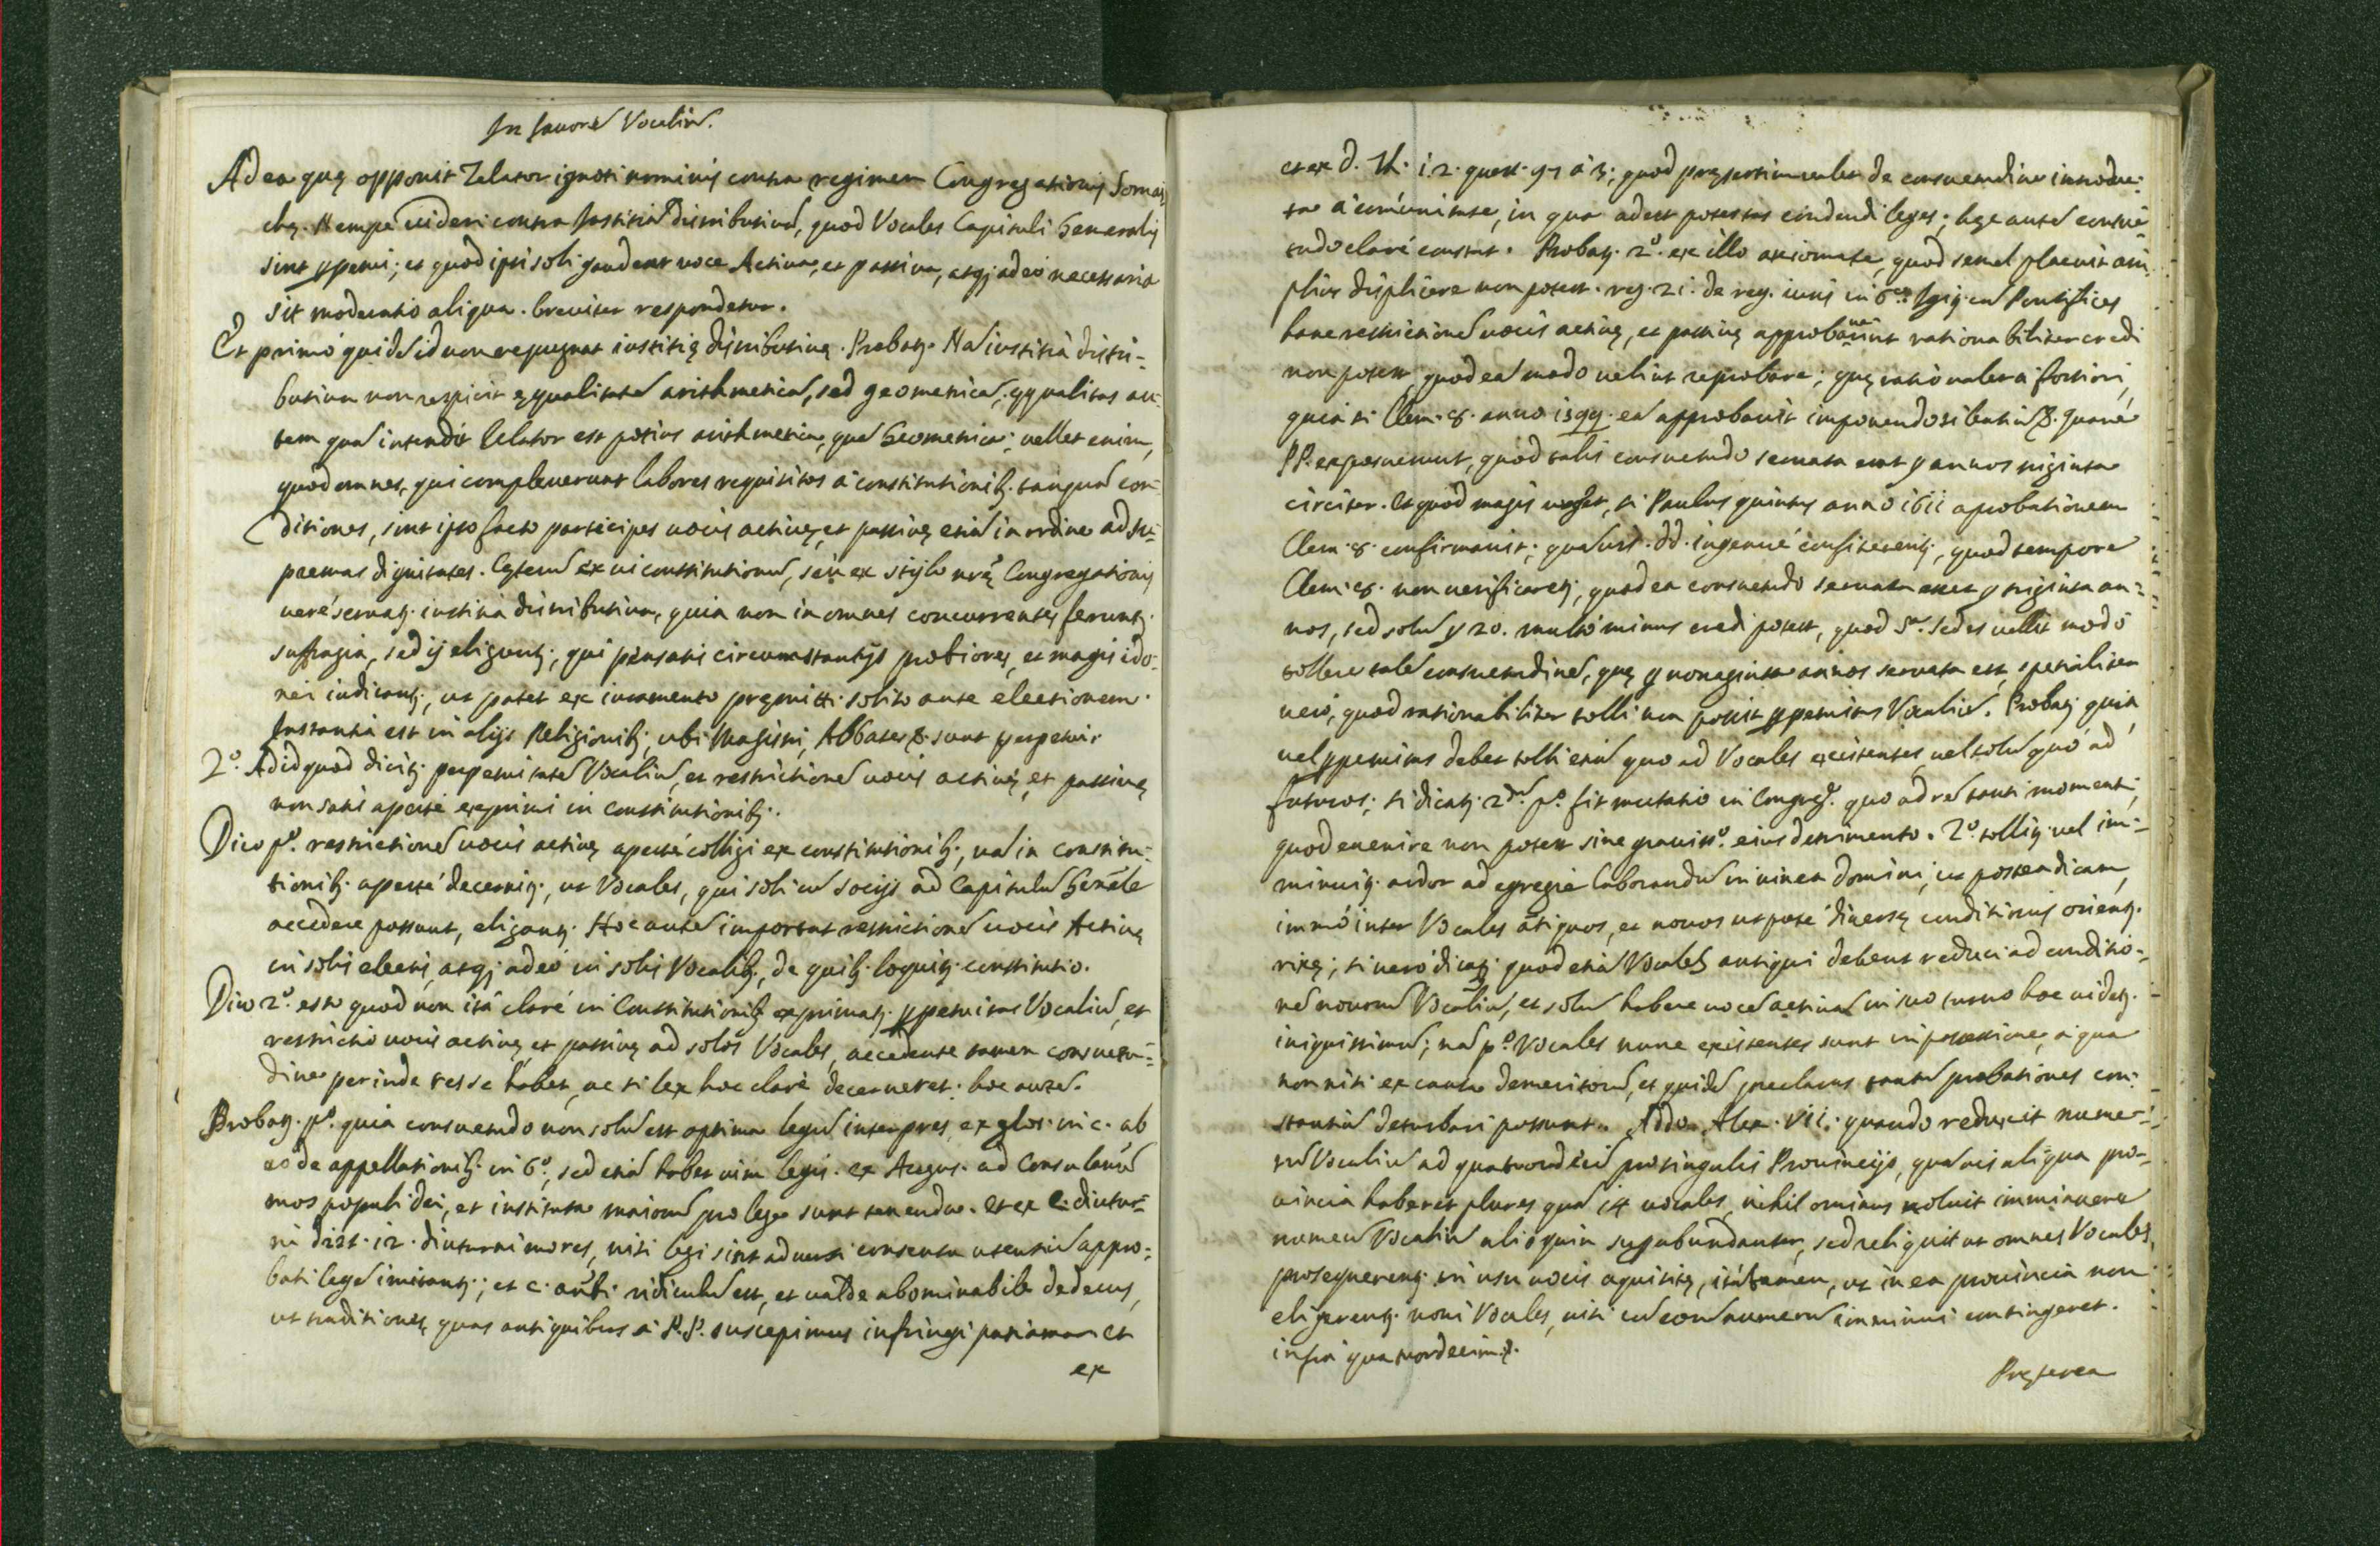 In favorē Vocaliū.
Ad ea quę opponit Zelator ignoti nominis contra regimen Congregationis Somas
chę. Nempe videri contra Justitiā distributivā, quod Vocales Capituli Generalis
sint ꝑpetui; et quod ipsi soli gaudeant voce Activa, et passiva, atqȝ adeò necessaria
sit moderatio aliqua. breviter respondetur.
Et primò quidē id non repugnat iustitię distributivę. Probatȝ. Nā iustitia distri-
butiva non respicit ęqualitatē arithmeticā, sed geometricā; ęqualitas au-
tem quā intendit Zelator est potius arithmetica, quā Geometrica; vellet enim,
quod omnes, qui compleverunt labores requisitos à constitutionibȝ. tanquā con-
ditiones, sint ipso facto participes vocis activę, et passivę etiā in ordine ad su-
premas dignitates. Cęterū ex vi constitutionū, seù ex stylo nrę Congregationis
verè servatȝ. iustitia distributiva, quia non in omnes concurrentes feruntȝ.
suffragia, sed ij eliguntȝ, qui pensatis circumstantijs probiores, et magis ido-
nei iudicantȝ, ut patet ex iuramento pręmitti solito ante electionem.
Instantia est in alijs Religionibȝ, ubi Magistri, Abbates &. sunt perpetui.
2º. Ad id quod dicitȝ. perpetuitatē Vocaliū, et restrictionē vocis activę, et passivę
non satis apertè exprimi in Constitutionibȝ.
Dico pº. restrictionē vocis activę apertè colligi ex constitutionibȝ, nā in constitu-
tionibȝ. apertè decernitȝ, ut Vocales, qui soli cū socijs ad Capitulū Genāle
accedere possunt, eligantȝ. Hoc autē importat restrictionē vocis Activę
in solis electis, atqȝ adeò in solis Vocalibȝ, de quibȝ. loquitȝ. constitutio.
Dico 2º. esto quod non ità clarè in Constitutionibȝ exprimatȝ. ꝑpetuitas Vocaliū, et
restrictio vocis activę, et passivę ad solos Vocales, accedente tamen consuetu-
dine perinde res se habet, ac si lex hoc clarè decerneret. hoc autē.
Probatȝ. pº. quia consuetudo non solū est optima legū interpres, ex glos. in c. ab
eo de appellationibȝ. in 6º, sed etiā habet vim legis. ex Augus. ad Consulanū
mos populi dei, et instituta maiorū pro lege sunt tenenda. et ex C. diutur-
ni dist. 12. diuturni mores, nisi legi sint adversi consensu utentiū appro-
bati legē imitantȝ; et c. ridiculū est, et valde abominabile dedecus,
ut traditiones, quas antiquibus à P.P. suscepimus infringi patiamur et
ex
et ex d. Th. 1.2. quest. 97 à 3; quod pręsertim valet de consuetudine introduc-
ta à comunitate, in qua adest potestas condendi leges; hęc autē consue-
tudo clarè constat. Probatȝ. 2º. ex illo axiomate, quod semel placuit am
plius displicere non potest. reg. 21. de reg. iuris in 6º. Igitȝ. cū Pontifices
hanc restrictionē vocis activę, et passivę approbaverint rationabiliter credi
non potest, quod eā modo velint reprobare; quę ratio valet à fortiori,
quia si Clem. 8. anno 1599. eā approbavit imponendo silentiū &. quare
PP. exposuerunt, quod talis consuetudo servata erat ꝑ annos triginta
circiter. Et quod magis urget, si Paulus quintus anno 1611 aprobationem
Clem. 8. confirmavit; quāvis. dd. ingenuè confiterentȝ, quod tempore
Clem. 8. non verificaretȝ, quod ea consuetudo servata esset ꝑ triginta an-
nos, sed solū ꝑ 20. multò minus credi potest, quod Sª. Sedes vellit modò
tollere talē consuetudinē, quę ꝑ nonaginta annos servata est, spetialiter
verò, quod rationabiliter tolli non possit ꝑpetuitas Vocaliū. Probatȝ quia
vel ꝑpetuitas debet tolli etiā quo ad Vocales existentes, vel solū quò ad
futuros; si dicatȝ. 2dū. pº. fit mutatio in Congregº. quo ad rē tanti momenti,
quod evenire non potest sine gravissº. eius detrimento. 2º. tollitȝ vel im-
minuitȝ. ardor ad egregiè laborandū in vinea domini, ut postea dicam,
immò inter Vocales ātiquos, et novos utpotè diversę conditionis orientȝ.
rixę; si verò dicatȝ quod etiā Vocales antiqui debent reduci ad conditio-
nē novorū Vocaliū, et solū habere vocē activā in suo turno hoc videtȝ.
iniquissimū; nā pº. Vocales nunc existentes sunt in possessione, à qua
non nisi ex causa demeritorū, et quidē pręclaras tantū probationes con-
stantiū deturbari possunt. Addo Alex. VII. quando reduxit nume-
rū Vocaliū ad quatuordecī pro singulis Provincijs, quāvis aliqua pro-
vincia haberet plures quā 14 vocales, nihil ominus noluit imminuere
numerū Vocaliū alioquin supabundantē, sed reliquit ut omnes Vocales
prosequerentȝ. in usu vocis aquisitę, ità tamen, ut in ea provincia non
eligerentȝ. novi Vocales, nisi cū eorū numerū imminui contingeret.
infra quatuordecim &.
Pręterea